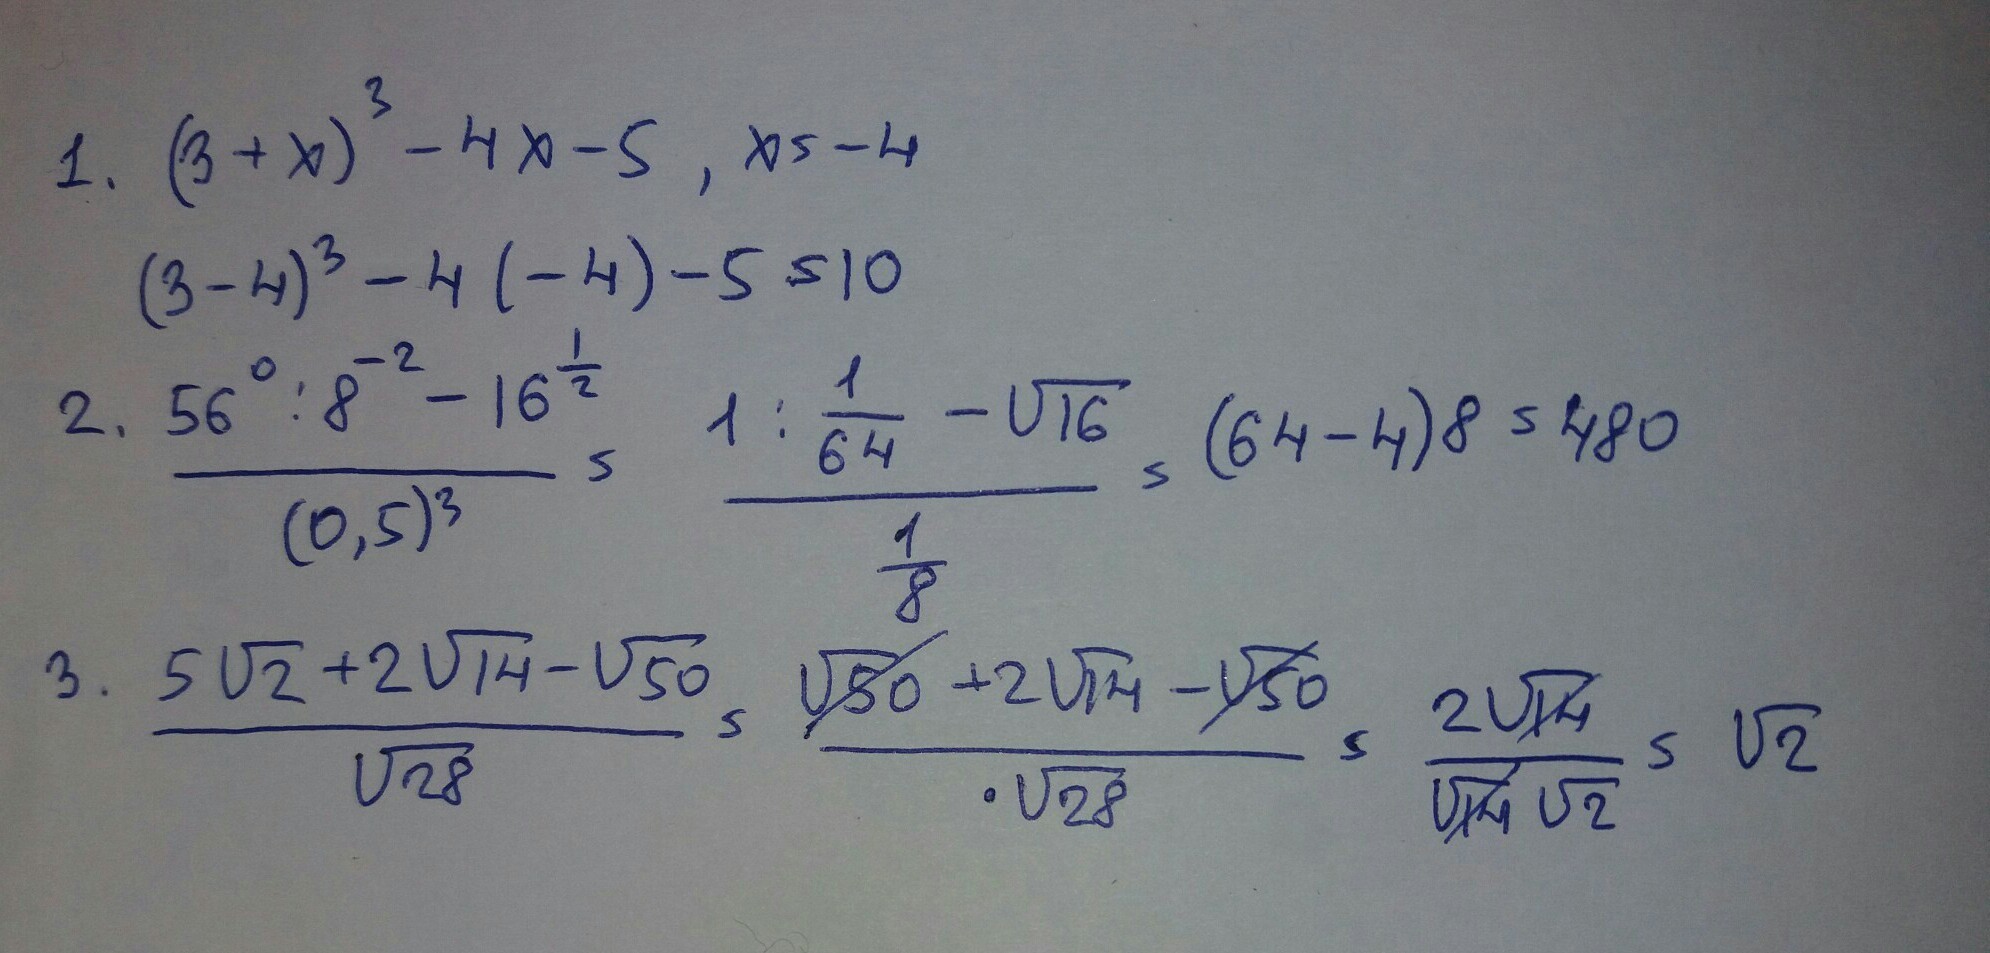 1. (3+x)³ - 4x - 5, x = -4
(3-4)³ - 4(-4) - 5 = 10
2. (56⁰ : 8⁻² - 16^(1/2)) / (0,5)³ = (1 : 1/64 - √16) / (1/8) = (64-4)8 = 480
3. (5√2 + 2√14 - √50) / √28 = (√50 + 2√14 - √50) / √28 = 2√14 / (√14 √2) = √2